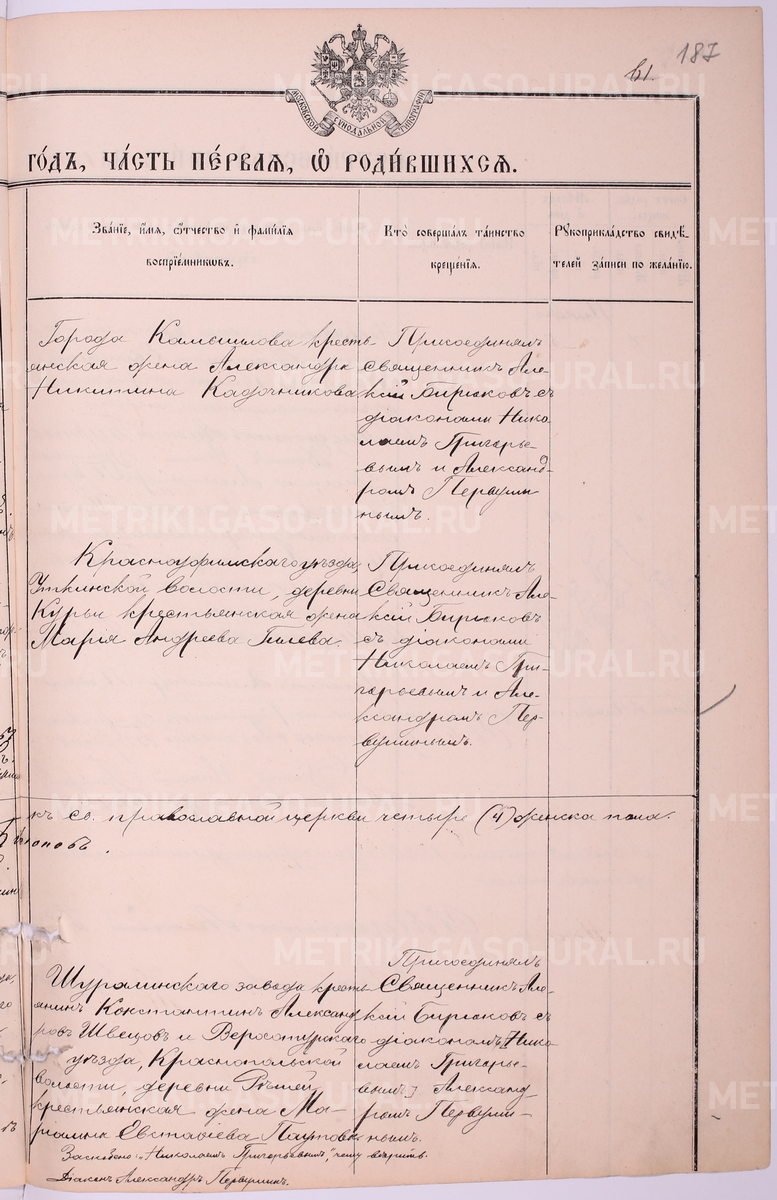 187
61.
МОСКОВСКОЙ СУНОДАЛЬНОЙ ТИПОГРАФІИ
ГО́ДЪ, ЧА́СТЬ ПЕ́РВАЯ, Ѡ҆ РОДИ́ВШИХСЯ.
Зва́ніе, и҆́мя, ѻ҆́тчество и҆ фами́лія
воспріе́мниковъ.
Кто̀ соверша́лъ та́инство
креще́нія.
Рꙋкоприкла́дство свидѣ́-
телей за́писи по жела́нію.
Города Камышлова кресть-
янская жена Александра
Никитина Кадочникова
Присоединялъ
священникъ Але-
ксій Бирюковъ съ
діаконами Нико-
лаемъ Григорье-
вымъ и Александ-
ромъ Первуши-
нымъ.
Красноуфимскаго уѣзда,
Уткинской волости, деревни
Курьи крестьянская жена
Марія Андреева Гилева.
Присоединялъ
Священникъ Але-
ксій Бирюковъ
съ діаконами
Николаемъ Гри-
горьевымъ и Але-
ксандромъ Пер-
вушинымъ.
къ св. православной церкви четыре (4) женска пола.
Шуралинскаго завода кресть-
янинъ Константинъ Александ-
ровъ Швецовъ и Верхотурскаго
уѣзда, Краснопольской
волости, деревни
крестьянская жена Ма-
ріамна Евстафіева
Присоединялъ
Священникъ Але-
ксій Бирюковъ съ
діаконамъ Нико-
лаемъ Григорье-
вымъ Александ-
ромъ Первуши-
нымъ.
Заскоблено: "Николаемъ Григорьевымъ," чему вѣрить.
Діаконъ Александръ Первушинъ.
METRIKI.GASO-URAL.RU